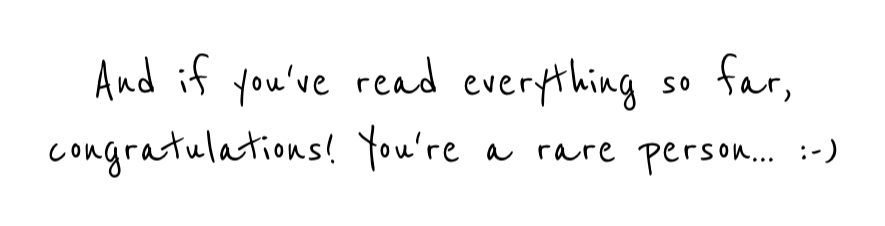 And if you've read everything so far,
congratulations! You're a rare person... :-)